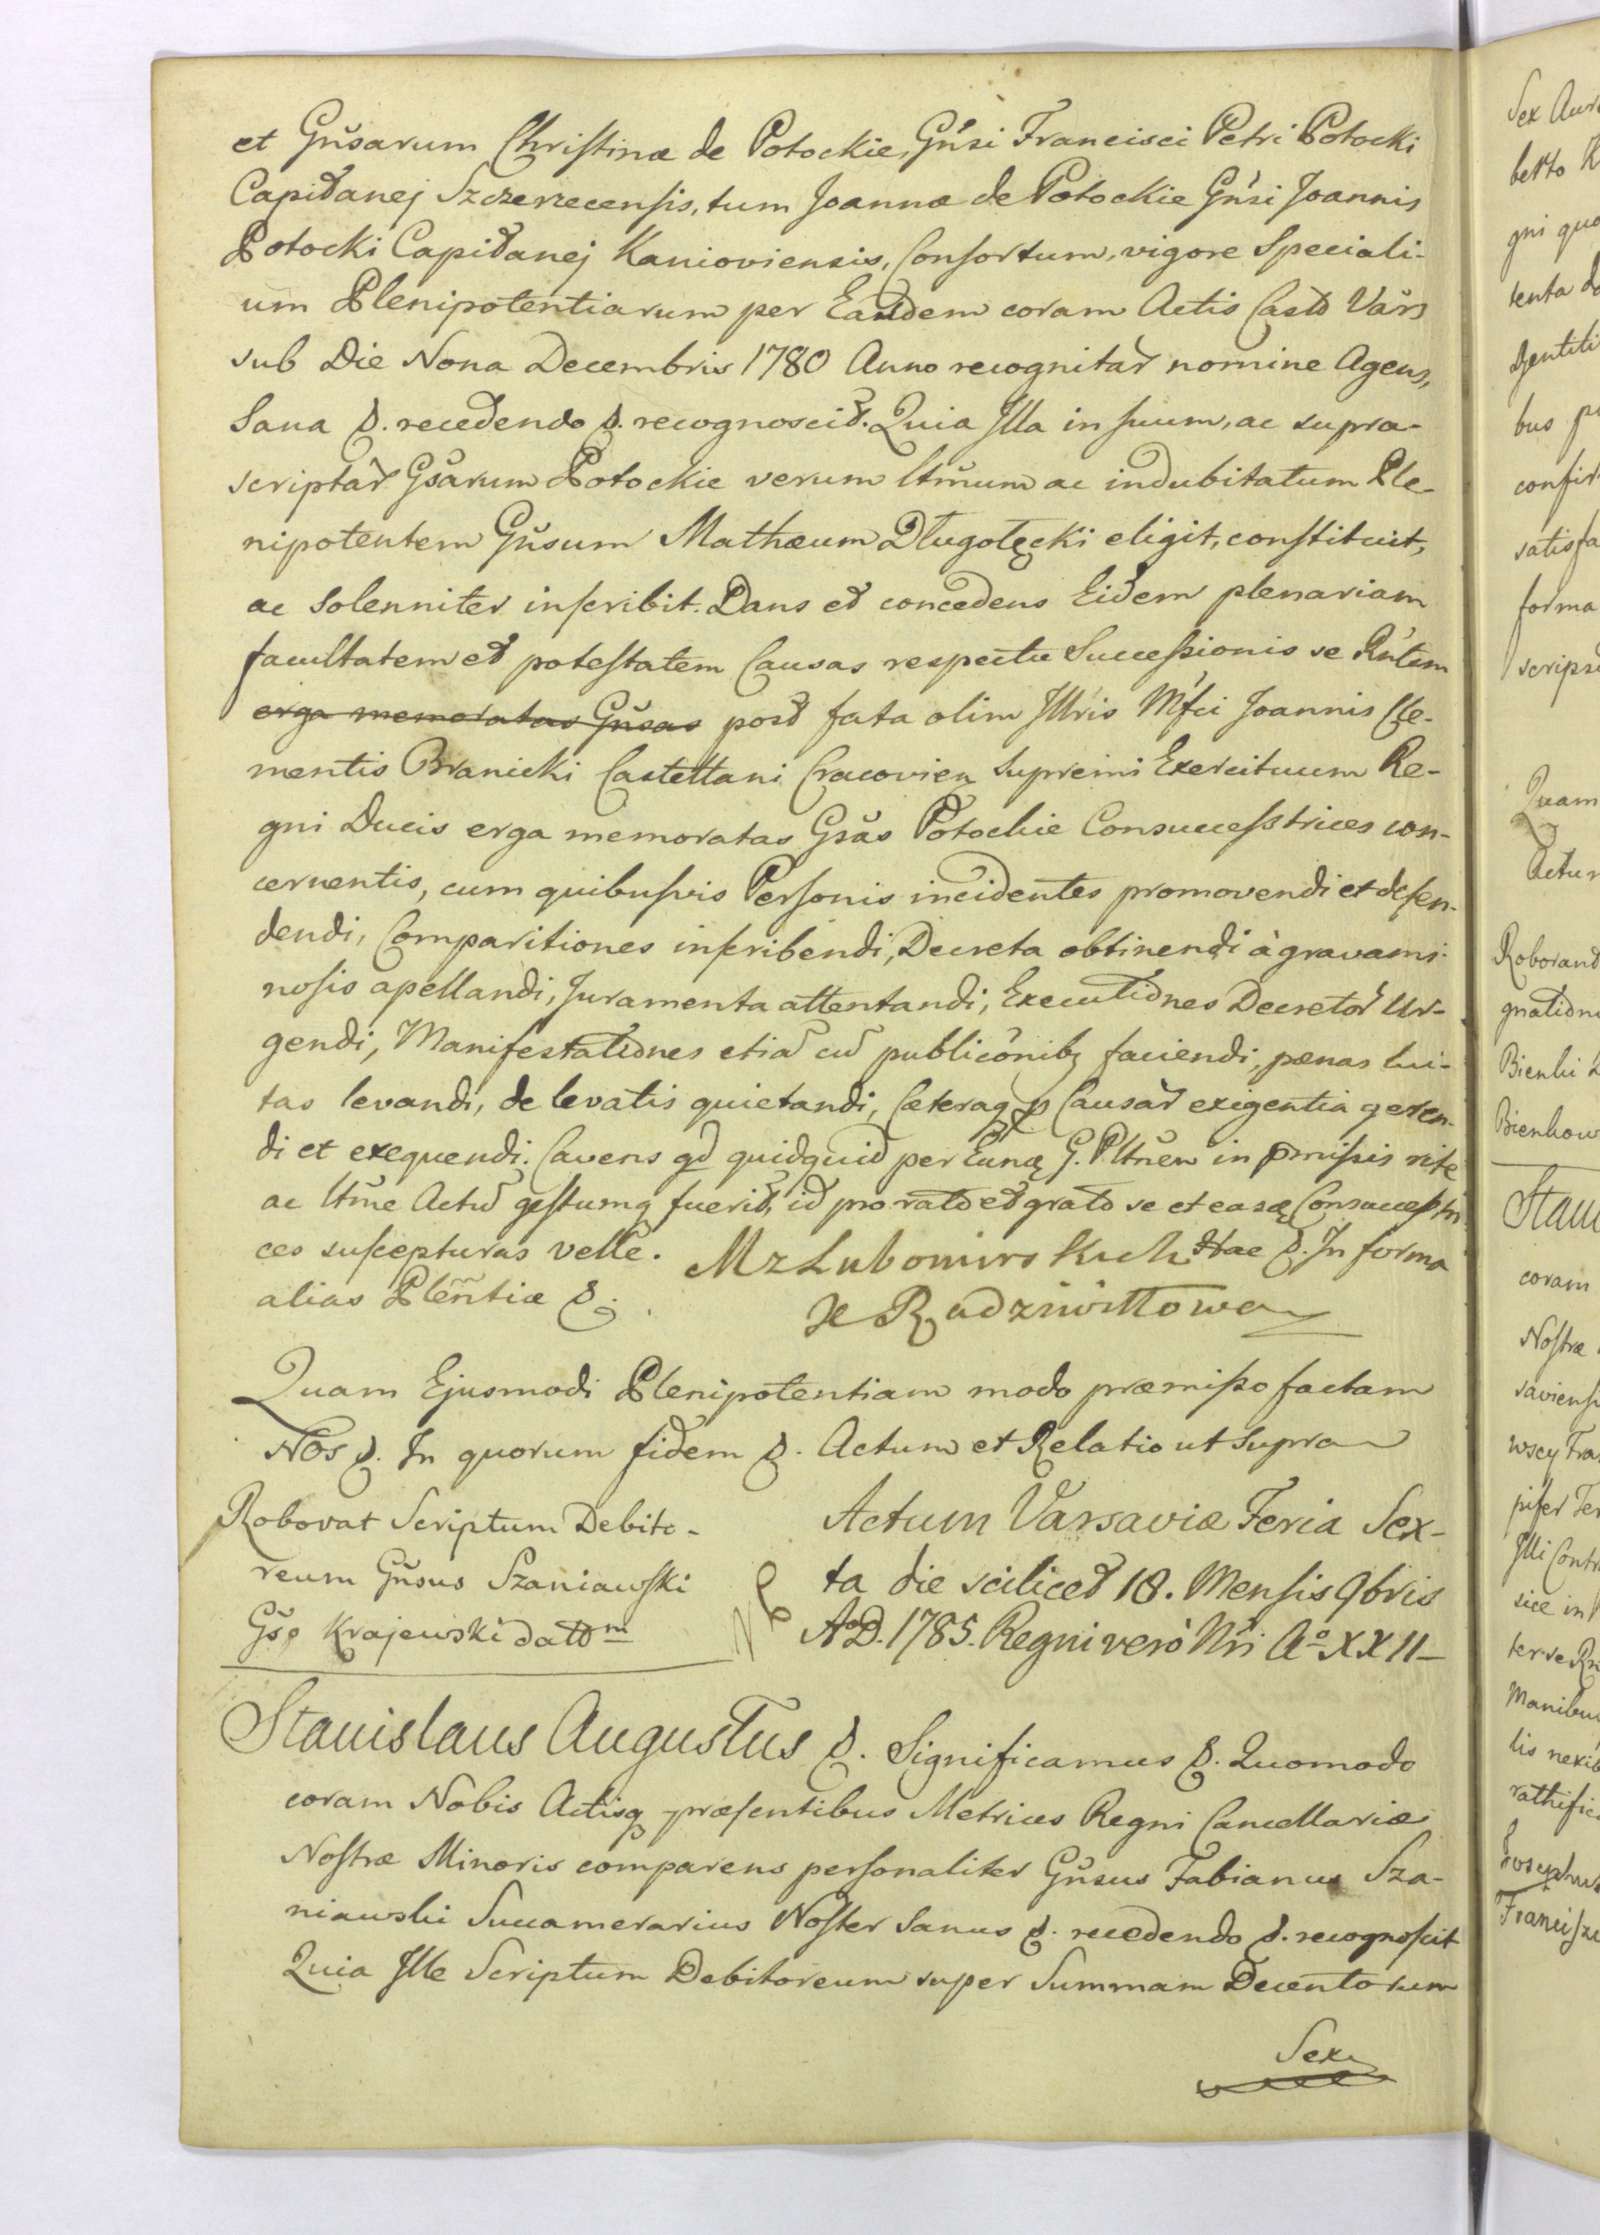 et Gnsarum Christinæ de Potockie, Gnsi Francisci Petri Potocki
Capitanej Szczerzecensis, tum Joannæ de Potockie Gnsi Joannis
Potocki Capitanej Kanioviensis, Consortum, vigore Speciali-
um Plenipotentiarum per Easdem coram Actis Casto Vars
sub Die Nona Decembris 1780 Anno recognitar nomine Agens,
Sana &. recedendo &. recognoscit. Quia Illa in suum, ac supra-
scriptar Gsarum Potockie verum ltmum ac indubitatum Ple-
nipotentem Gnsum Mathæum Długołęcki eligit, constituit,
ac solenniter inscribit. Dans et concedens Eidem plenariam
facultatem et potestatem Causas respectu Successionis se Rntem
erga memoratas Gnsas post fata olim Illris Mfci Joannis Cle-
mentis Branicki Castellani Cracovien Supremi Exercituum Re-
gni Ducis erga memoratas Gsas Potockie Consuccesstrices con-
cernentis, cum quibusvis Personis incidentes promovendi et defen-
dendi, Comparitiones inscribendi, Decreta obtinendi à gravami-
nosis apellandi, Juramenta attentandi, Executiones Decretor Ur-
gendi, Manifestationes etia cu publiconibq faciendi, pœnas lui-
tas levandi, de levatis quietandi, Cæteraq p Causar exigentia geren-
di et exequendi. Cavens qd quidquid per Eunq G. Pltnen in pmissis rite
ac ltme Actu gestumq fuerit, id pro rato et grato se et easq Consuccesstri-
ces suscepturas velle. MzLubomirskich Hae &. In forma
alias Plenntiæ &.
K Radziwiłłowa
Quam Ejusmodi Plenipotentiam modo præmisso factam
Nos &. In quorum fidem &. Actum et Relatio ut supra
Roborat Scriptum Debito-
reum Gnsus Szaniawski
Gso Krajewski datt m
Actum Varsaviæ Feria Sex-
ta die scilicet 18. Mensis 9bris
AD. 1785. Regni verò Nri Aº XXII_
Stanislaus Augustus &. Significamus &. Quomodo
coram Nobis Actisq præsentibus Metrices Regni Cancellariæ
Nostræ Minoris comparens personaliter Gnsus Fabianus Sza-
niawski Succamerarius Noster Sanus &. recedendo &. recognoscit
Quia Ille Scriptum Debitoreum super Summam Ducentorum
Sex